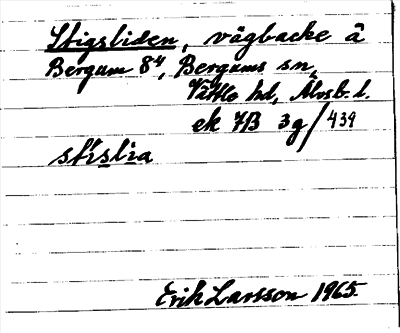 Stigsliden, vägbacke å
Bergum 8⁴, Bergums sn,
Vättle hd, Älvsb. l.
ek 7B 3g/439
stisliа
Erik Larsson 1965.